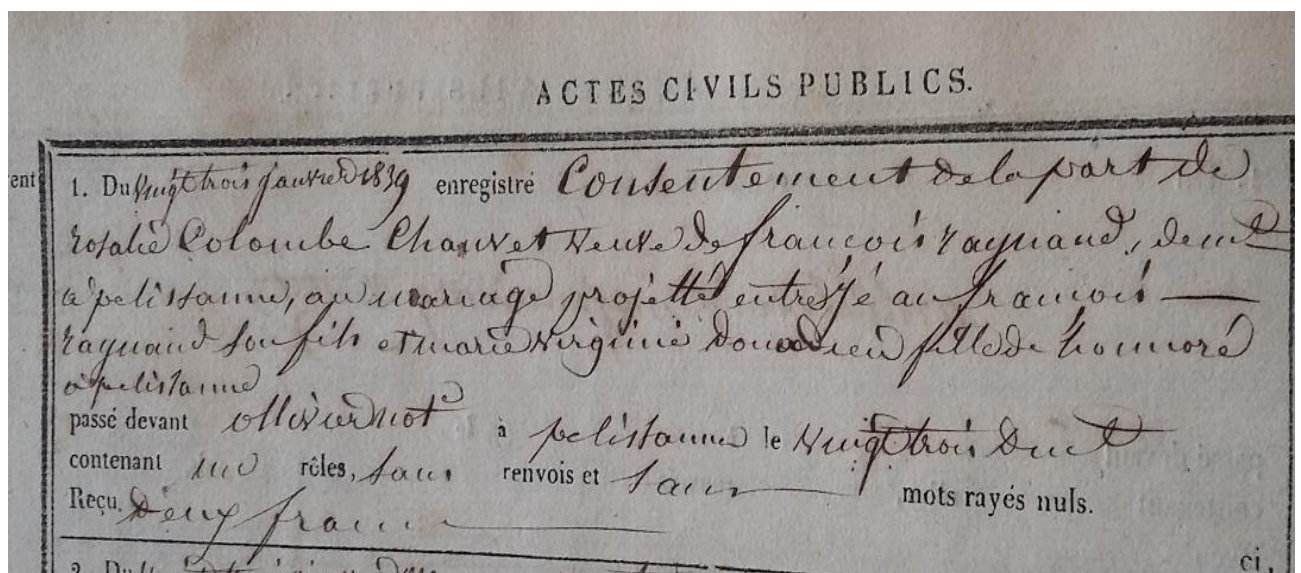 ACTES CIVILS PUBLICS.
ent
1. Du vingt trois janvier 1839 enregistré Consentement de la part de
rosalie Colombe Chauvet veuve de francois raynaud, demt
a pelissanne, au mariage projetté entre jean francois —
raynaud son fils et marie virginie donnadieu fille de honnoré
a pelissanne
passé devant ollivier not à pelissanne le vingt trois duct
contenant un rôles, sans renvois et sans mots rayés nuls.
Reçu, deux francs
ci,
2. Du